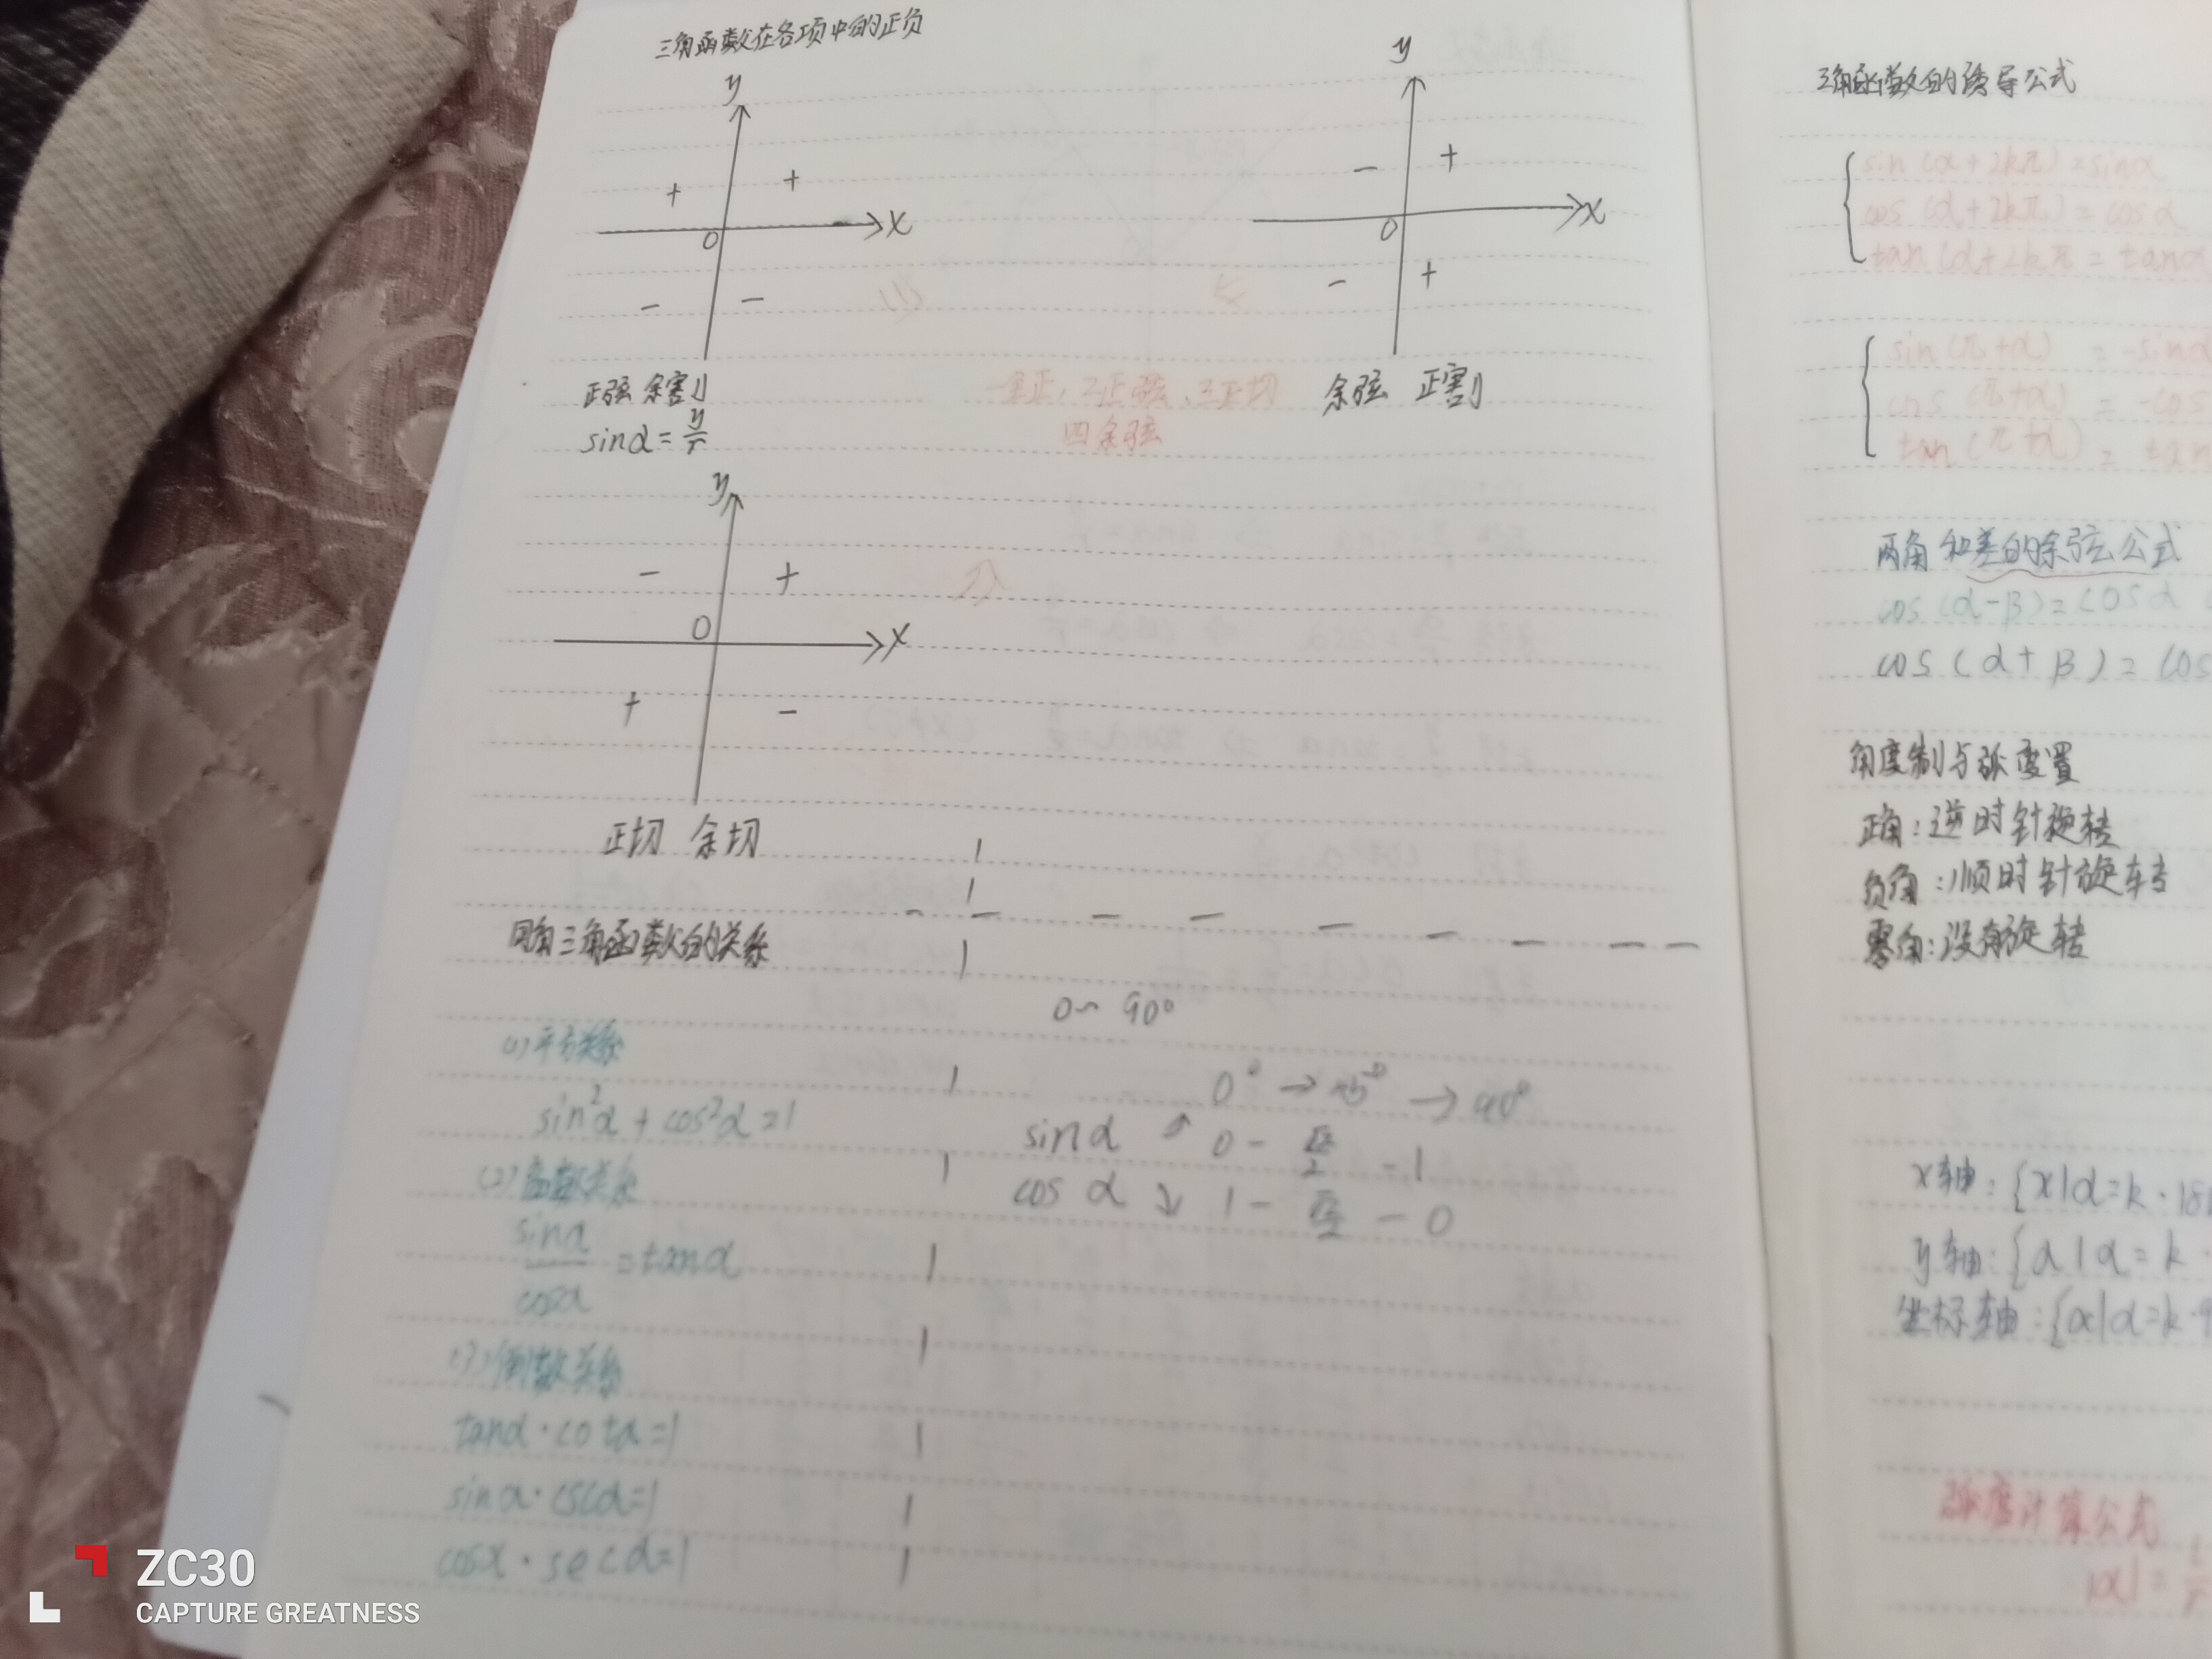 三角函数在各项中的正负
y
+ +
0 x
- -
正弦 余割
sinα = y/r
y
- +
0 x
- +
余弦 正割
一全正,二正弦,三正切
四余弦
y
- +
0 x
+ -
正切 余切
同角三角函数的关系
(1)平方关系
sin²α + cos²α = 1
(2)商数关系
sinα/cosα = tanα
(3)倒数关系
tanα·cotα=1
sinα·cscα=1
cosα·secα=1
0~90°
0° → 45° → 90°
sinα ↗ 0 - √2/2 - 1
cos α ↘ 1 - √2/2 - 0
三角函数的诱导公式
sin(α+2kπ)=sinα
cos(α+2kπ)=cosα
tan(α+2kπ = tanα
sin(π+α) = -sinα
cos(π+α) = -cos
tan(π+α) = tan
两角和差的余弦公式
cos(α-β)=cosα
cos(α+β)=cos
角度制与弧度置
正角:逆时针旋转
负角:顺时针旋转
零角:没有旋转
x轴:{x|α=k·18
y轴:{α|α=k·
坐标轴:{α|α=k·9
弧度计算公式
|α|=
ZC30
CAPTURE GREATNESS